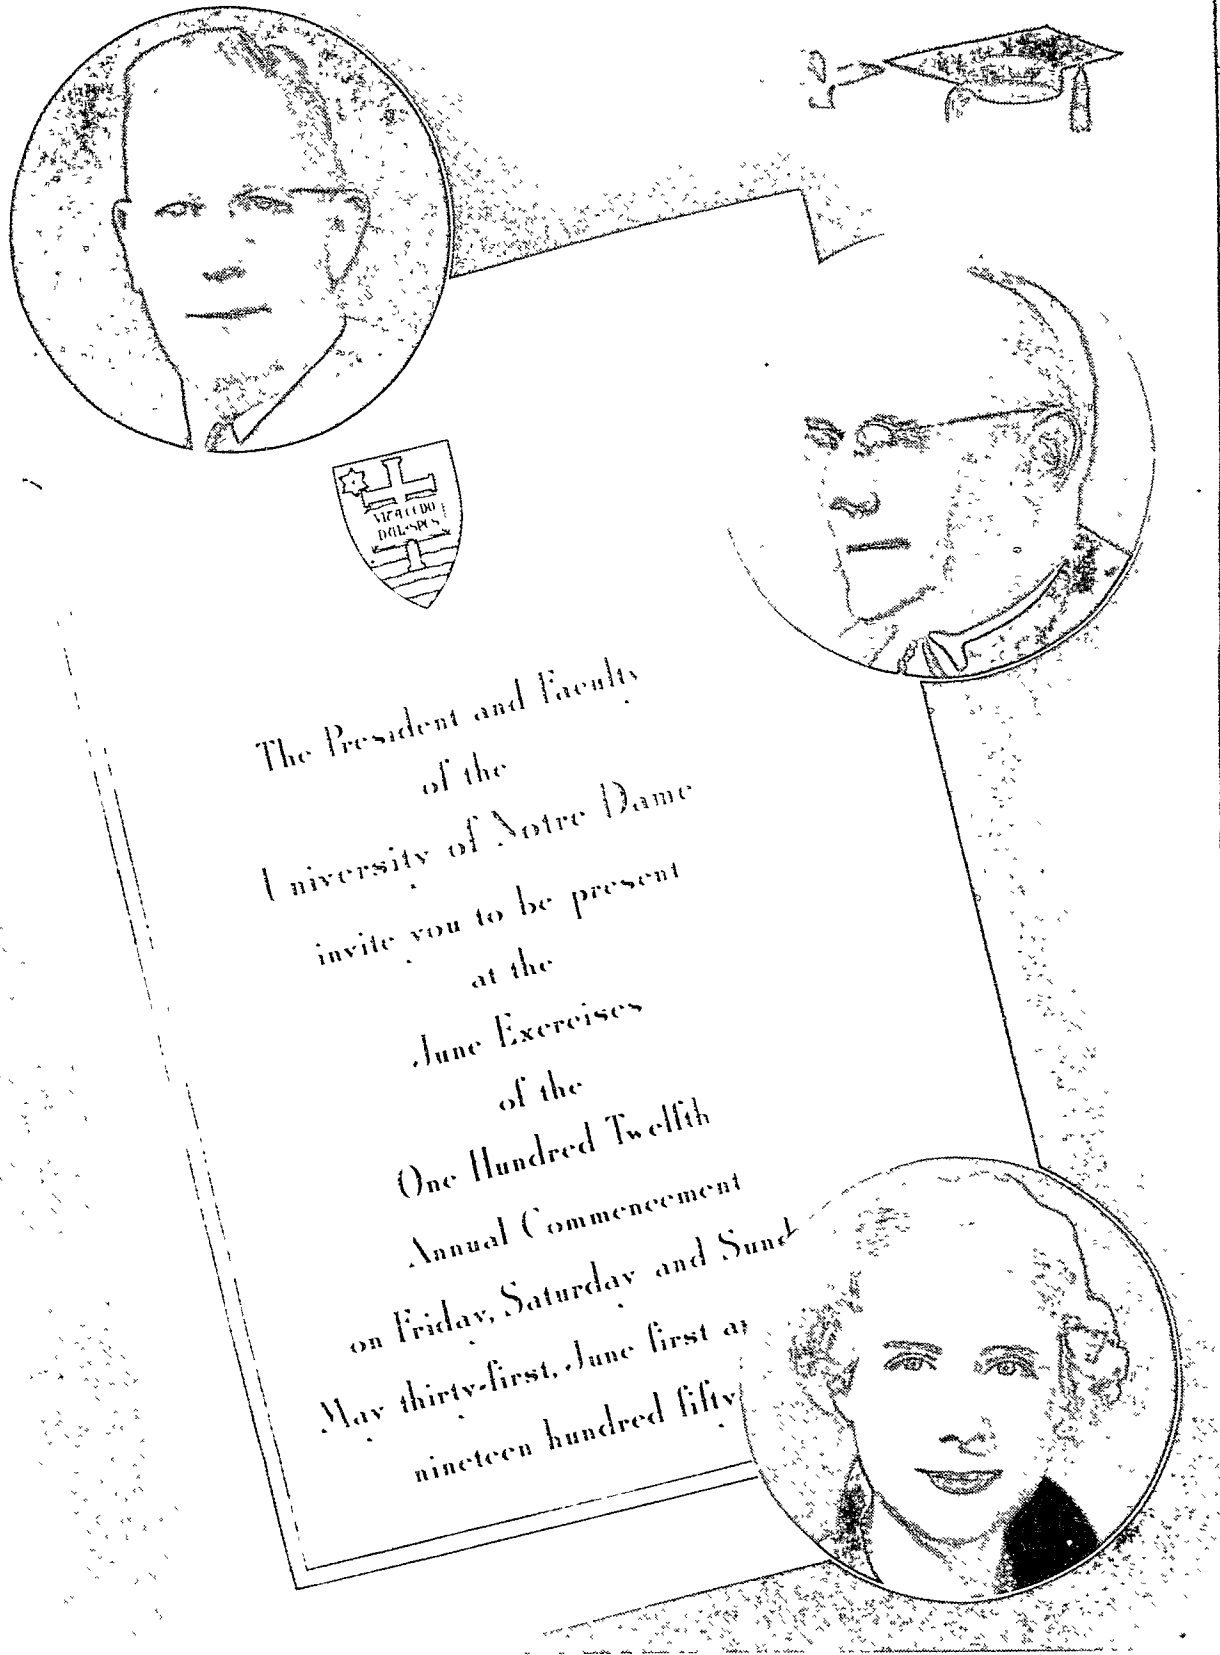 VITA CEDO
DUL·SPES
The President and Faculty
of the
University of Notre Dame
invite you to be present
at the
June Exercises
of the
One Hundred Twelfth
Annual Commencement
on Friday, Saturday and Sund
May thirty-first, June first
nineteen hundred fifty